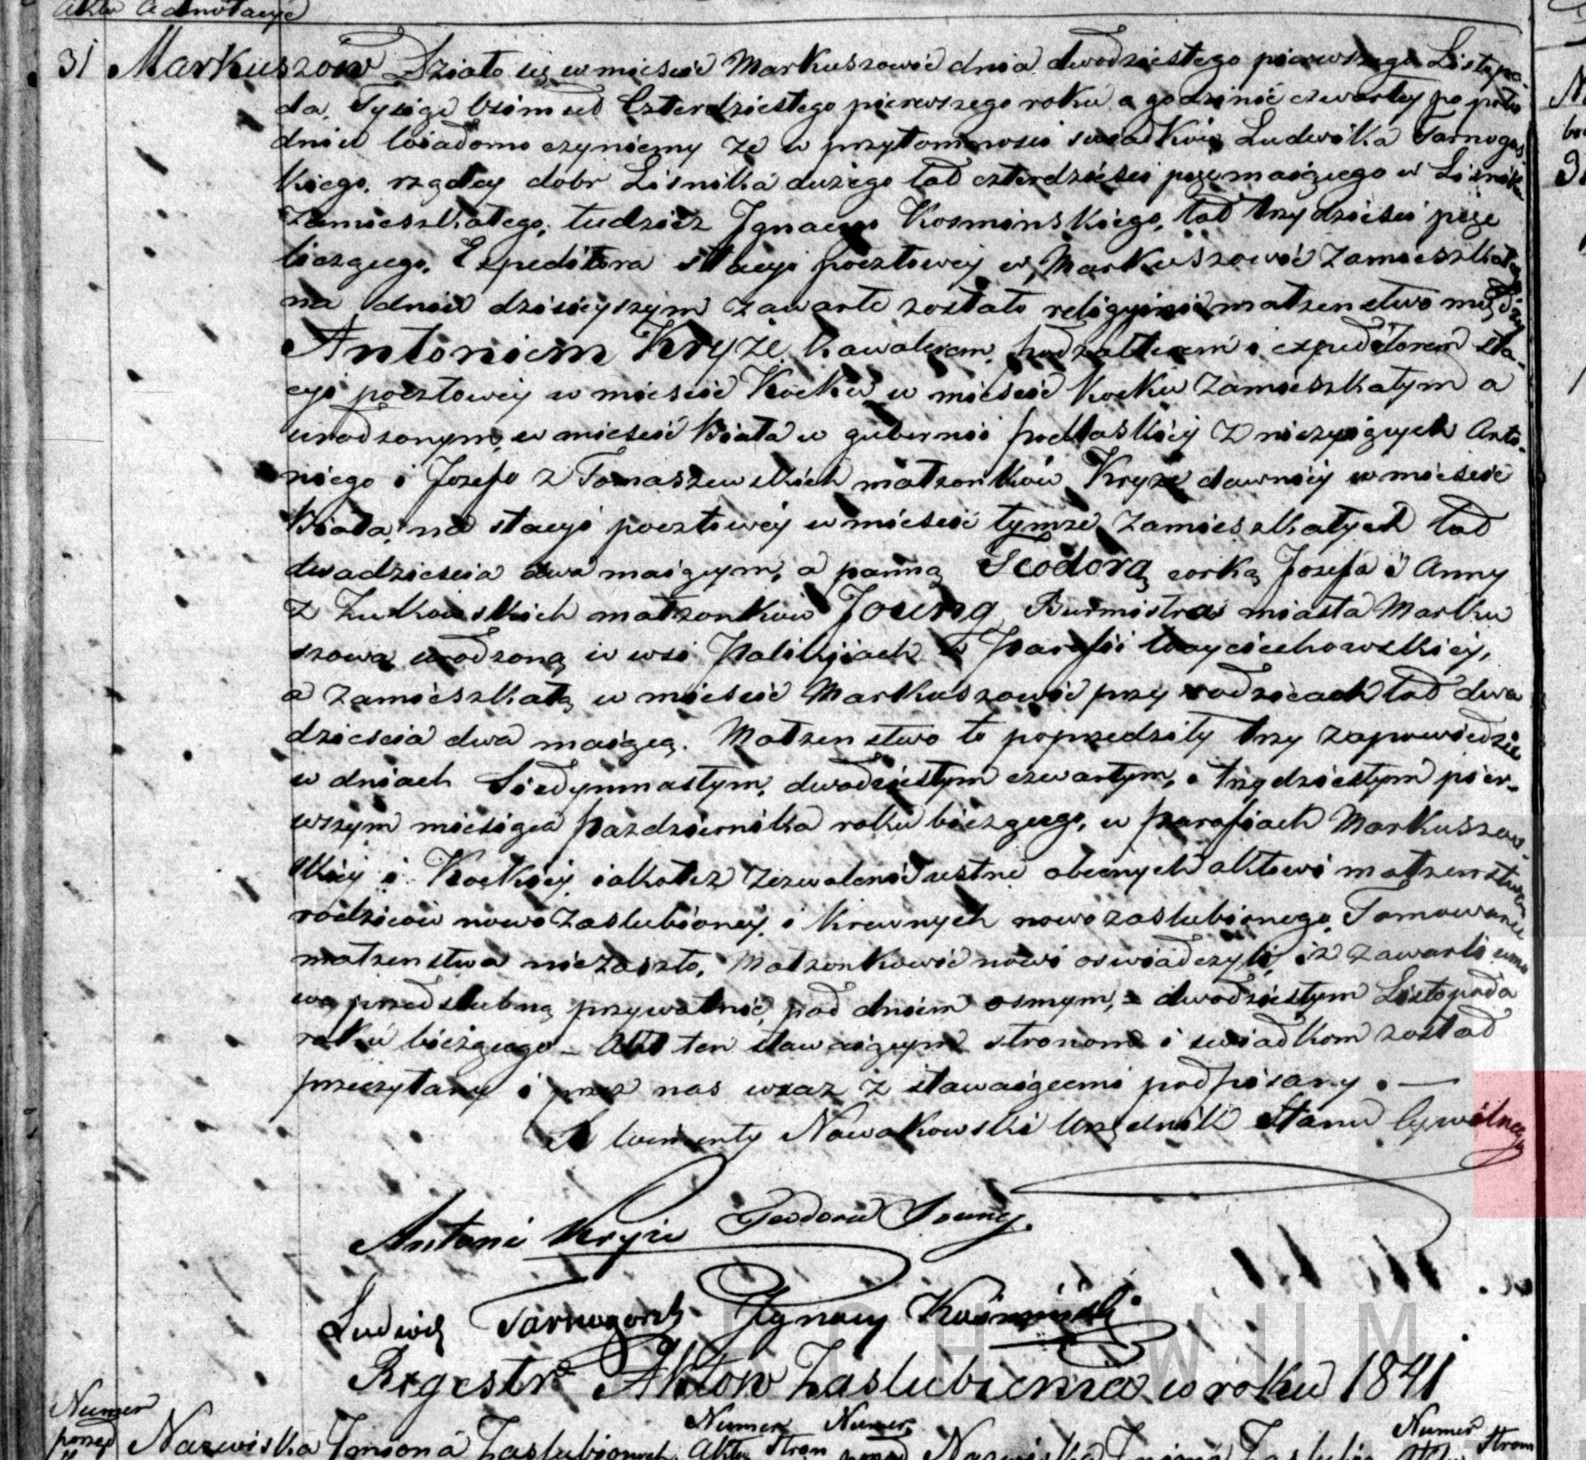 Aktu Adnotacye
31 Markuszów Działo się w mieście Markuszowie dnia dwudziestego pierwszego Listopa-
da, Tysiąc Ośmset Czterdziestego pierwszego roku o godzinie czwartey po połu
dniu Wiadomo czyniemy że w przytomności świadków Ludwika Tarnogor
kiego, rządcy dobr Lisnika dużego lat czterdzieści maiącego w Lisniku
zamieszkałego, tudzież Ignacego Kosminskiego, lat trzydzieści pięć
liczącego, Expeditora stacyi pocztowey w Markuszowie zamieszkałego
na dniu dzisieyszym zawarte zostało religijne małżeństwo między
Antonim Kryże kawalerem, i expeditorem sta-
cyi pocztowey w mieście Kocku w mieście Kocku zamieszkałym a
urodzonym w mieście Biała w gubernii podlaskiey z nieżyiących Anto-
niego i Jozefy z Tomaszewskich małżonków Kryże dawniey w mieście
Biała na stacyi pocztowey w mieście tymże zamieszkałych lat
dwadzieścia dwa maiącym, a panną Teodorą corką Jozefa i Anny
z Żukowskich małżonków Joung Burmistrza miasta Marku
szowa urodzoną w wsi w Parafii Woyciechowskiey,
a zamieszkałą w mieście Markuszowie przy rodzicach lat dwa
dzieścia dwa maiącą. Małżeństwo to poprzedziły trzy zapowiedzie
w dniach Siedymnastym, dwudziestym czwartym, i trzydziestym pier-
wszym miesiąca Pazdziernika roku bieżącego, w parafiach Markuszow-
skiey i Kockiey iakoteż zezwolenie ustne obecnych aktowi małżeństwa
rodziców nowo zaslubioney i krewnych nowozaslubionego Tamowanie
małżeństwa nie zaszło. Małżonkowie nowi oswiadczyli iż zawarli umo
wę przedslubną prywatnie, pod dniem osmym, dwudziestym Listopada
roku bieżącego – Akt ten stawaiącym stronom i swiadkom został
przeczytany i przez nas wraz z stawaiącemi podpisany. —
Nowakowski Urzędnik Stanu Cywilnego
Antoni Kryże Teodora Joung
Ludwik Tarnogorski Ignacy Kosminski
Regestr Aktow Zaslubienia w roku 1841
Numer
porząd
Nazwiska Imiona Zaslubionych
Numer
Aktu Stron
Numer
porząd
Nazwiska Imiona Zaslubio
Numer
Aktu Strona